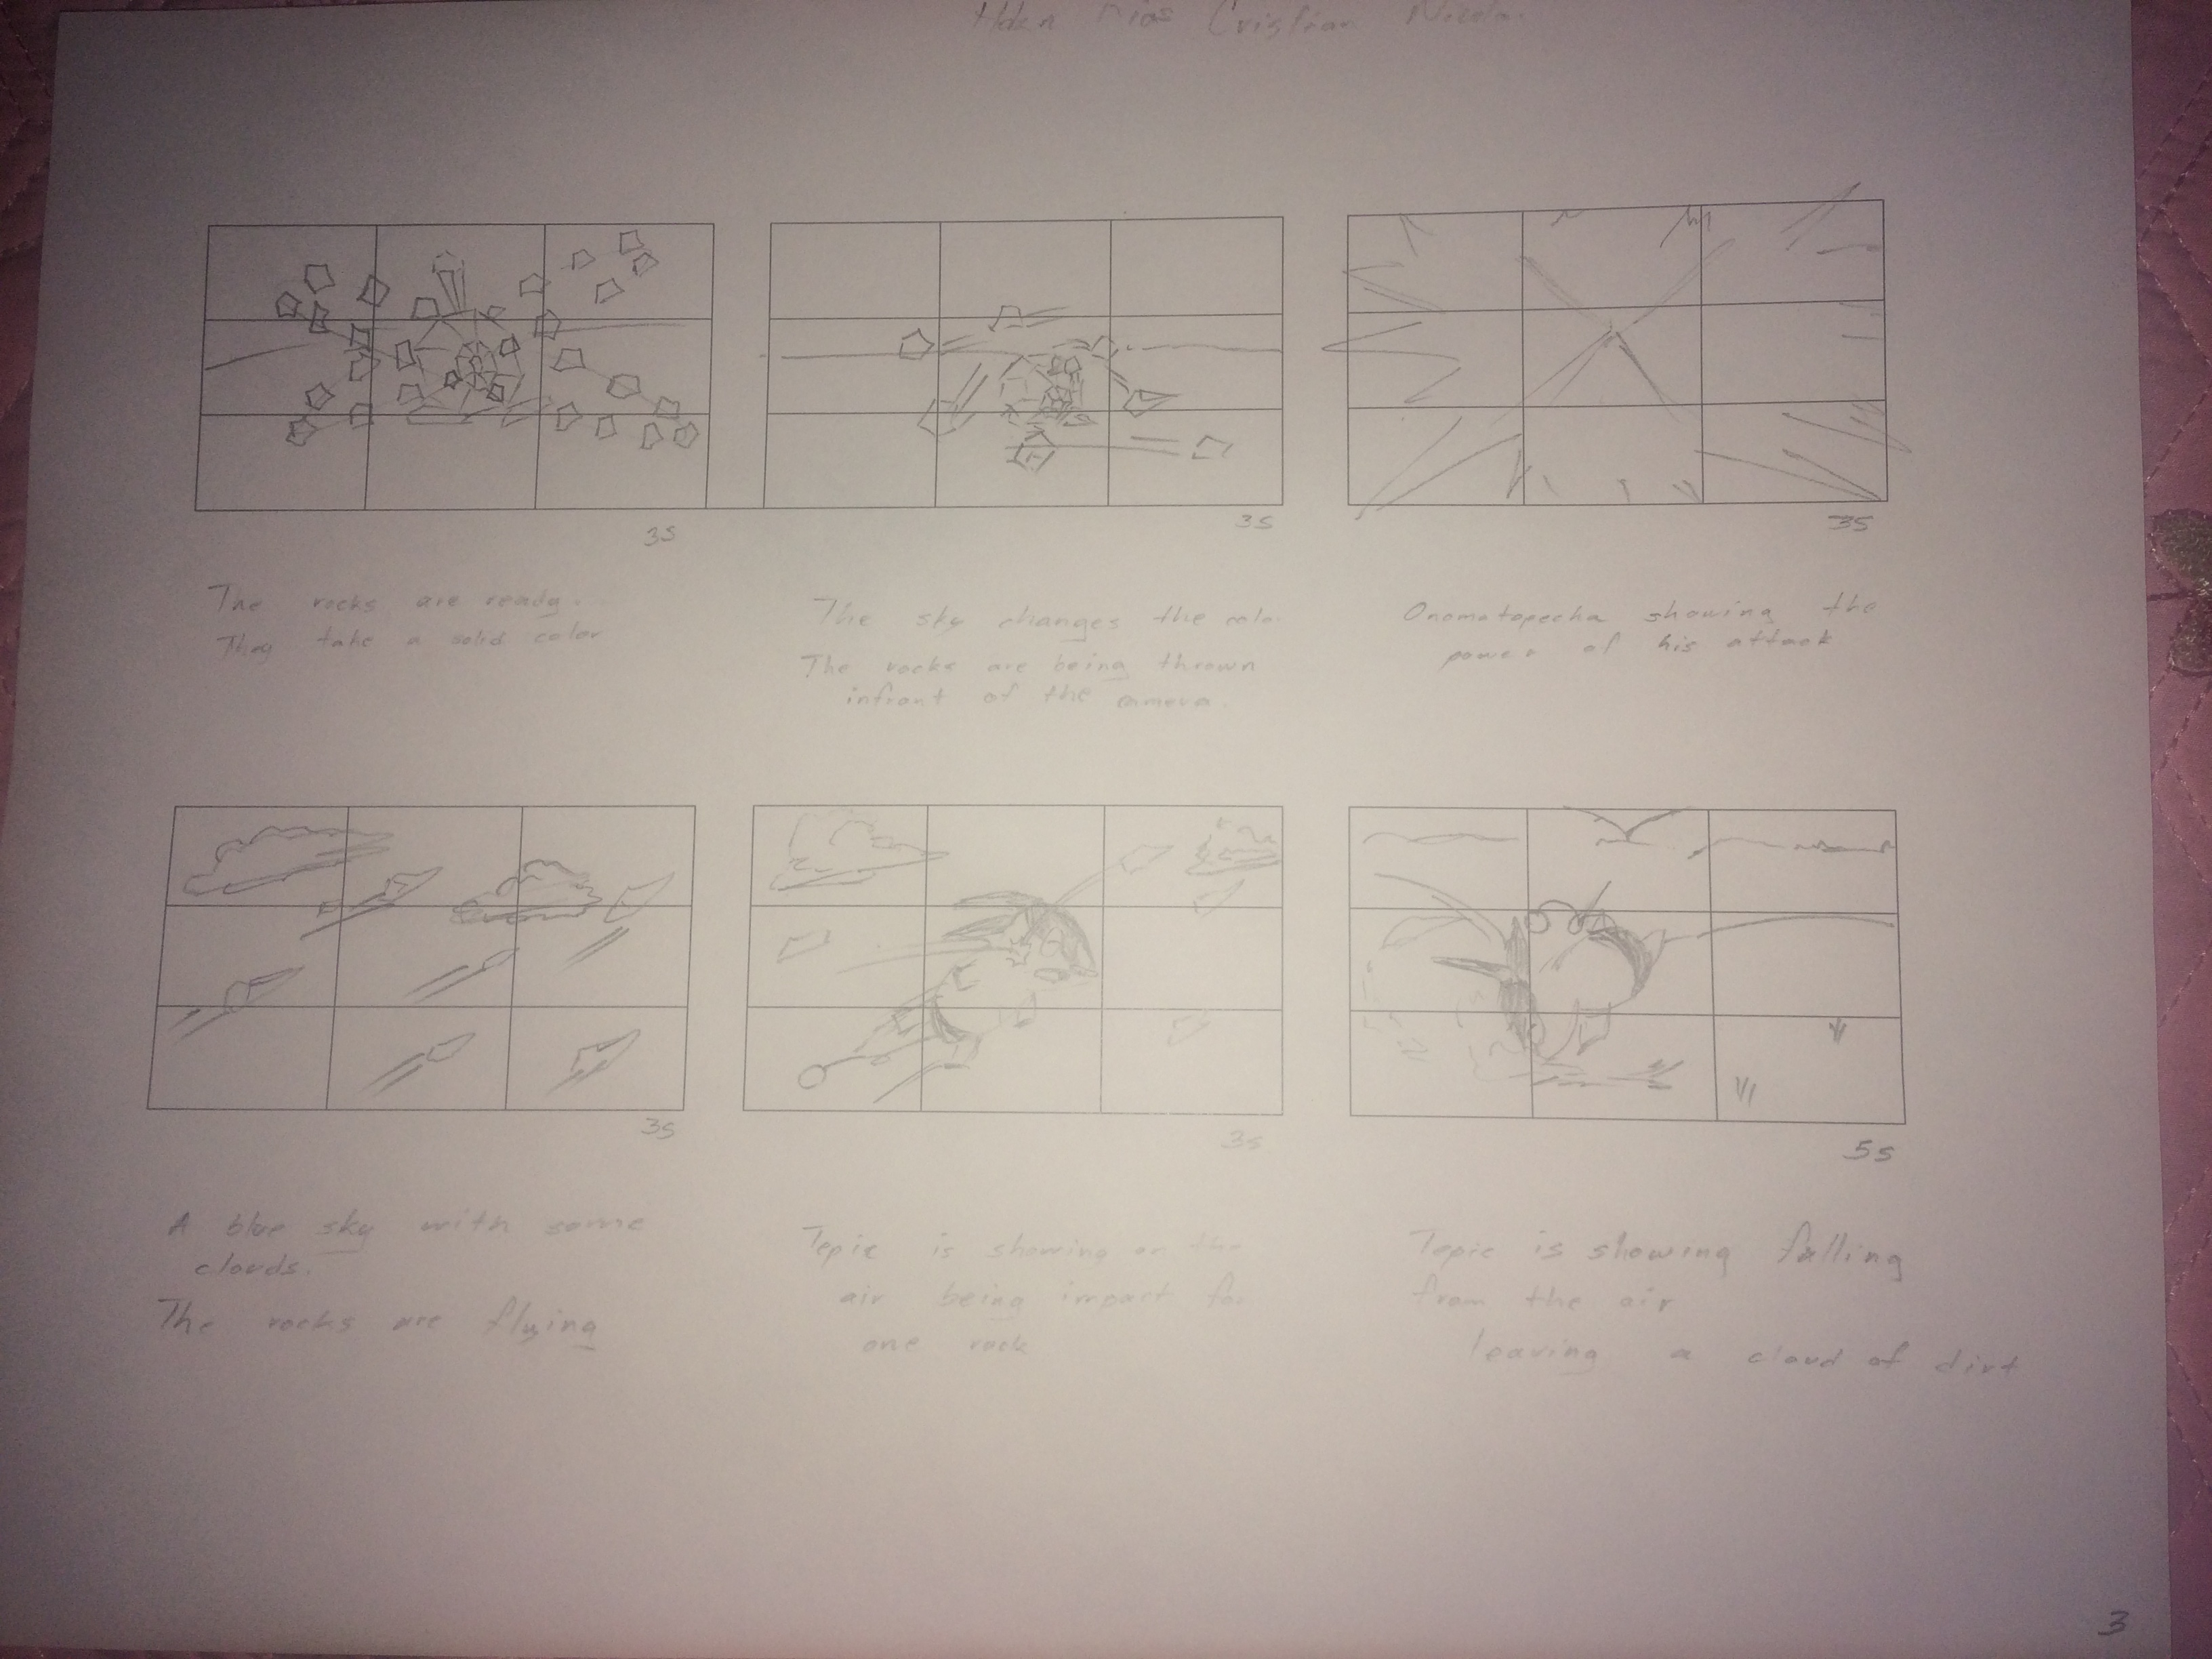 Cristian
3s
3s
3s
The rocks are ready.
They take a solid color
The sky changes the colo
The rocks are being thrown
infront of the camera.
Onomatopecha showing the
power of his attack
3s
3s
5s
A blue sky with some
clouds.
The rocks are flying
Tepic is showing on the
air being impact for
one rock
Tepic is showing falling
from the air
leaving a cloud of dirt
3